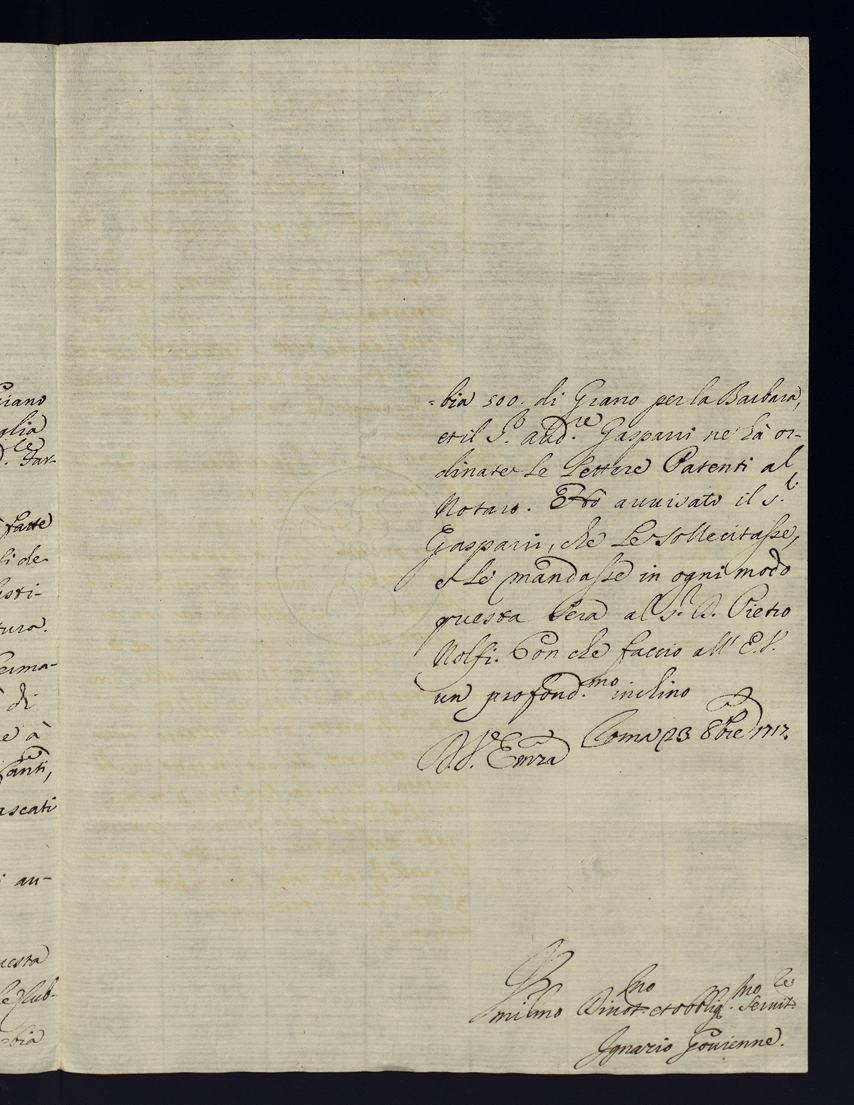 ciano
glia
farte
li de-
isti-
tura.
di
e à
anti,
ascati
i au-
uesta
le Rub-
-bia
-bia 500. di Grano per la Barbara,
et il S.r aud.re Gasparri ne hà or-
dinate le lettere Patenti al
Notaro. Hò avvisato il s.r
Gasparri, che le sollecitasse,
e le mandasse in ogni modo
questa sera al s.r D. Pietro
Nolfi. Con che faccio all' E.V.
un profond.mo inclino
D. V.ra Em.za Roma 23 8bre 1717.
Vmilmo Divot.mo et obblig.mo Servit.re
Ignazio Gouienne.